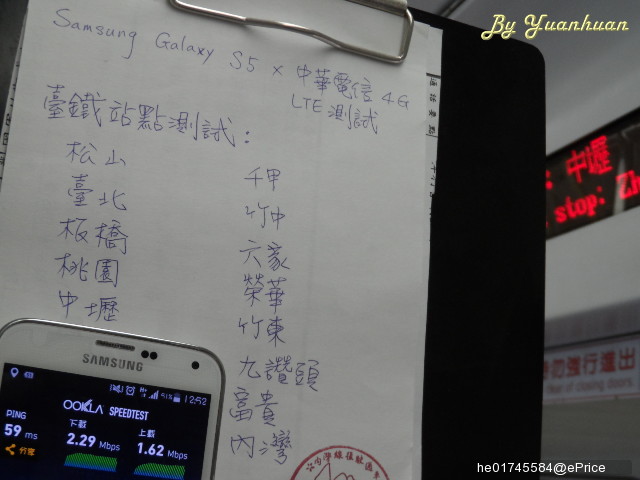 By Yuanhuan
Samsung Galaxy S5 x 中華電信 4G
LTE 測試
臺鐵站點測試：
松山
臺北
板橋
桃園
中壢
千甲
竹中
六家
榮華
竹東
九讚頭
富貴
內灣
: 中壢
stop: Zh
勿強行進出
SAMSUNG
51% 12:52
OOKLA SPEEDTEST
PING
59 ms
下載
2.29 Mbps
上載
1.62 Mbps
分享
he01745584@ePrice